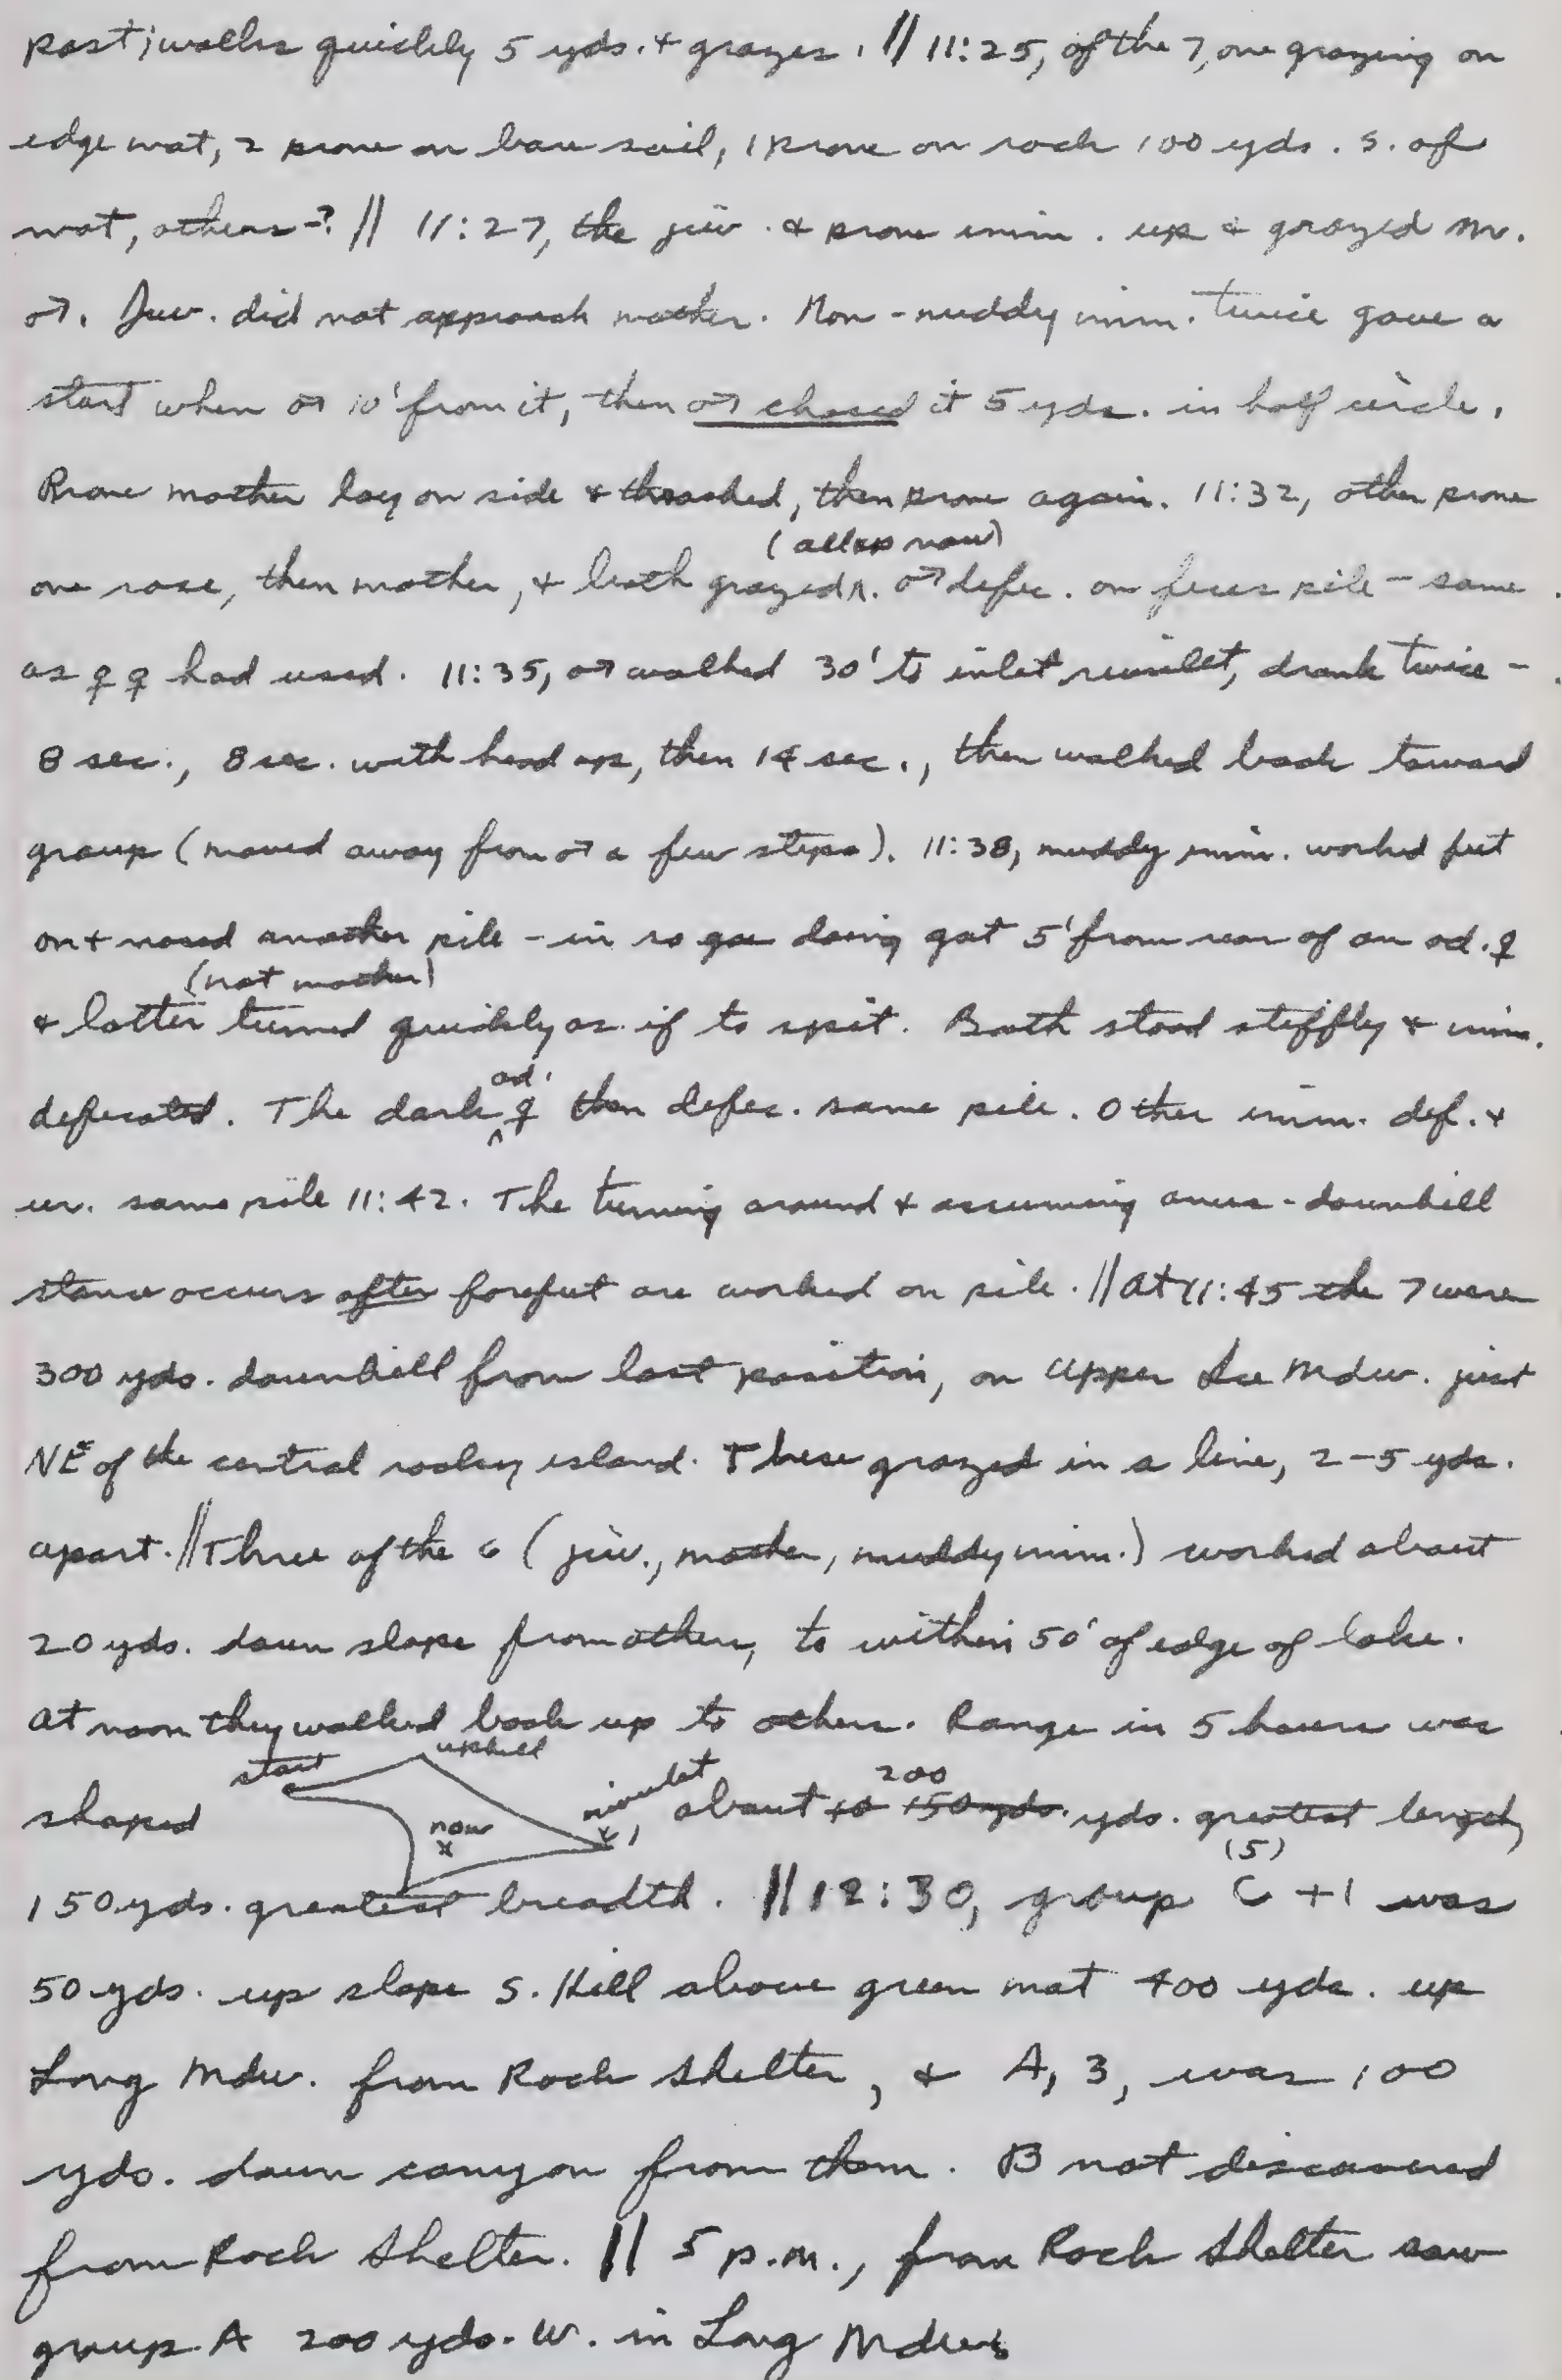 past; walks quickly 5 yds. & grazes. // 11:25, of the 7, one grazing on
edge mat, 2 prone on bare soil, 1 prone on rock 100 yds. S. of
mat, others-? // 11:27, the juv. & prone imm. up & grazed nr.
♂. Juv. did not approach mother. Non-muddy imm. twice gave a
start when ♂ 10' from it, then ♂ chased it 5 yds. in half circle.
Prone mother lay on side & thrashed, then prone again. 11:32, other prone
(all up now)
one rose, then mother, & both grazed. ♂ defec. on feces pile - same
as ♀♀ had used. 11:35, ♂ walked 30' to inlet rivulet, drank twice -
8 sec., 8 sec. with head up, then 14 sec., then walked back toward
group (moved away from ♂ a few steps). 11:38, muddy imm. worked feet
on & nosed another pile - in so doing got 5' from rear of an ad. ♀
(not mother)
& latter turned quickly as if to spit. Both stood stiffly & imm.
ad.
defecated. The dark ♀ then defec. same pile. Other imm. def. &
ur. same pile 11:42. The turning around & assuming anus-downhill
stance occurs after forefeet are worked on pile. // At 11:45 the 7 were
300 yds. downhill from last position, on Upper Ice Mdw. just
NE of the central rocky island. These grazed in a line, 2-5 yds.
apart. // Three of the 6 (juv., mother, muddy imm.) worked about
20 yds. down slope from others, to within 50' of edge of lake.
At noon they walked back up to others. Range in 5 hours was
start uphill rivulet 200
shaped now x , about to 150 yds. yds. greatest length,
(5)
150 yds. greatest breadth. // 12:30, group C +1 was
50 yds. up slope S. Hill above green mat 400 yds. up
Long Mdw. from Rock Shelter, & A, 3, was 100
yds. down canyon from them. B not discovered
from Rock Shelter. // 5 p.m., from Rock Shelter saw
group A 200 yds. W. in Long Mdw.